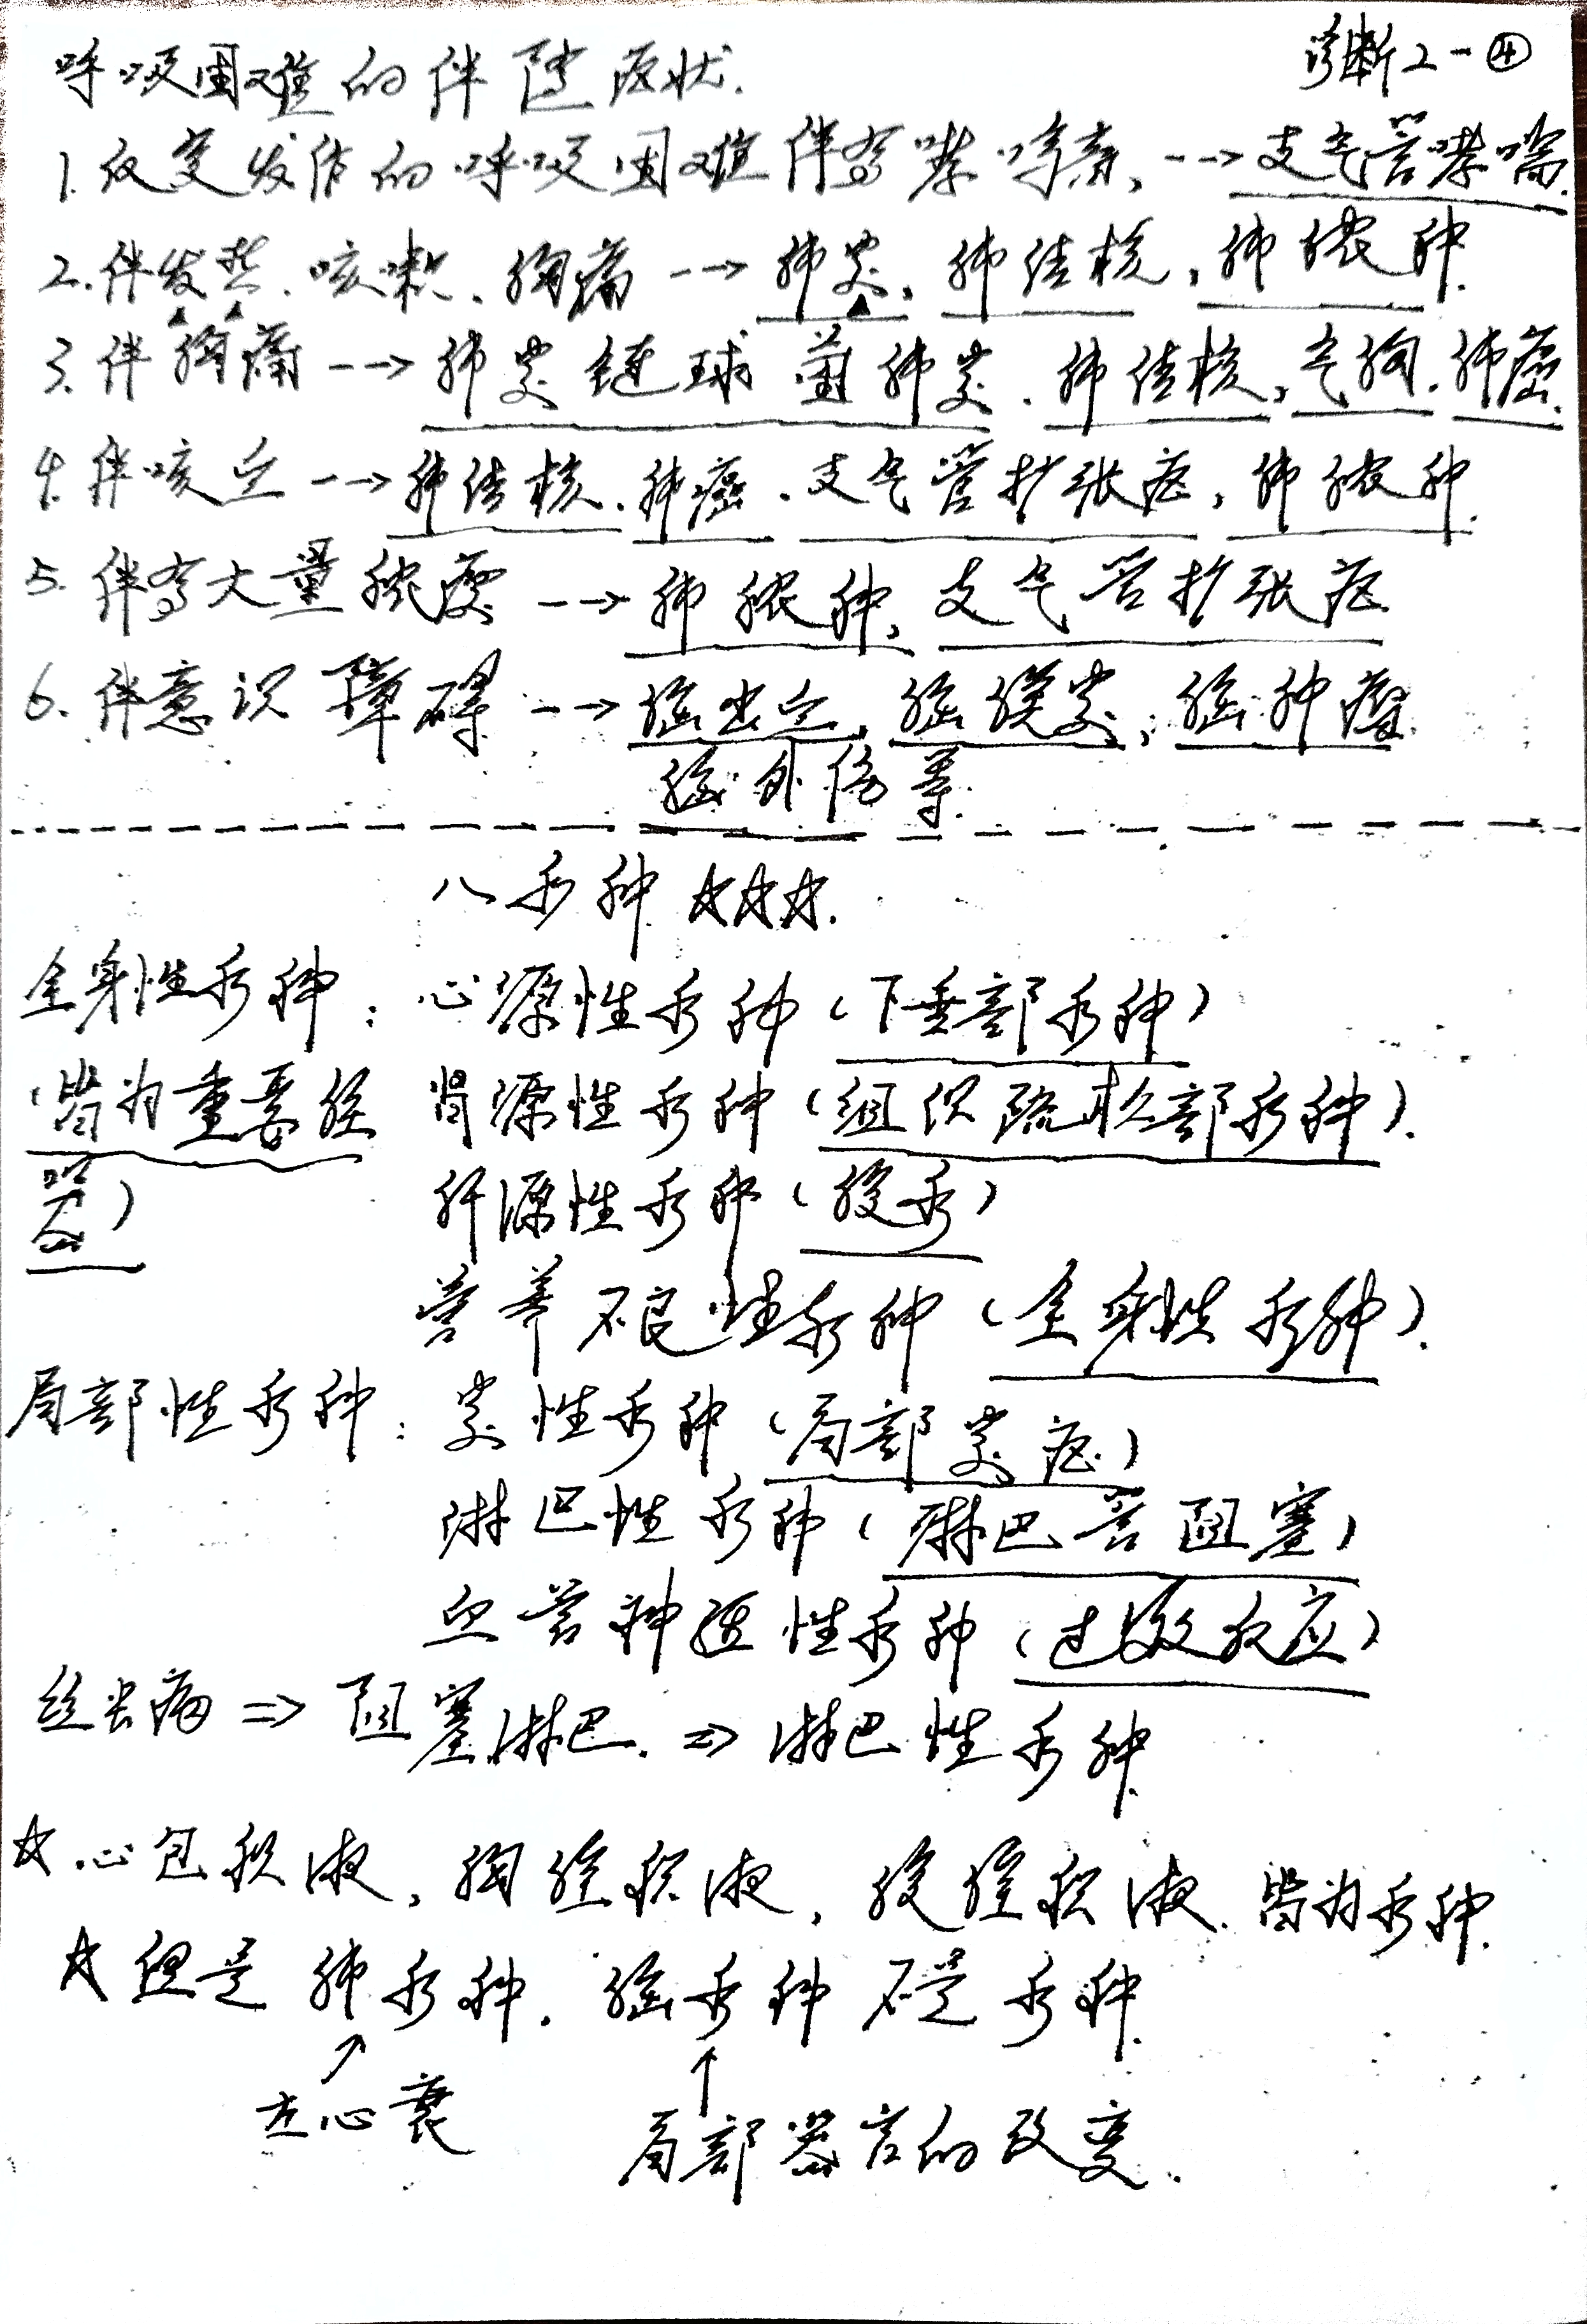 诊断2-④
呼吸困难的伴随症状.
1.反复发作的呼吸困难伴有哮鸣音,-→支气管哮喘.
2.伴发热、咳嗽、胸痛-→肺炎,肺结核,肺脓肿.
3.伴胸痛-→肺炎链球菌肺炎.肺结核,气胸.肺癌.
4.伴咳血-→肺结核.肺癌.支气管扩张症,肺脓肿.
5.伴有大量脓痰-→肺脓肿,支气管扩张症
6.伴意识障碍-→脑出血,脑膜炎,脑肿瘤.
脑外伤等.
八水肿☆☆☆.
全身性水肿:心源性水肿(下垂部水肿)
(皆为重要脏 肾源性水肿(组织疏松部水肿).
器) 肝源性水肿(腹水)
营养不良性水肿(全身性水肿).
局部性水肿:炎性水肿(局部炎症)
淋巴性水肿(淋巴管阻塞)
血管神经性水肿(过敏反应)
丝虫病⇒阻塞淋巴.⇒淋巴性水肿.
☆.心包积液,胸腔积液,腹腔积液.皆为水肿.
☆但是肺水肿.脑水肿不是水肿.
↑ ↑
左心衰 局部器官的改变.